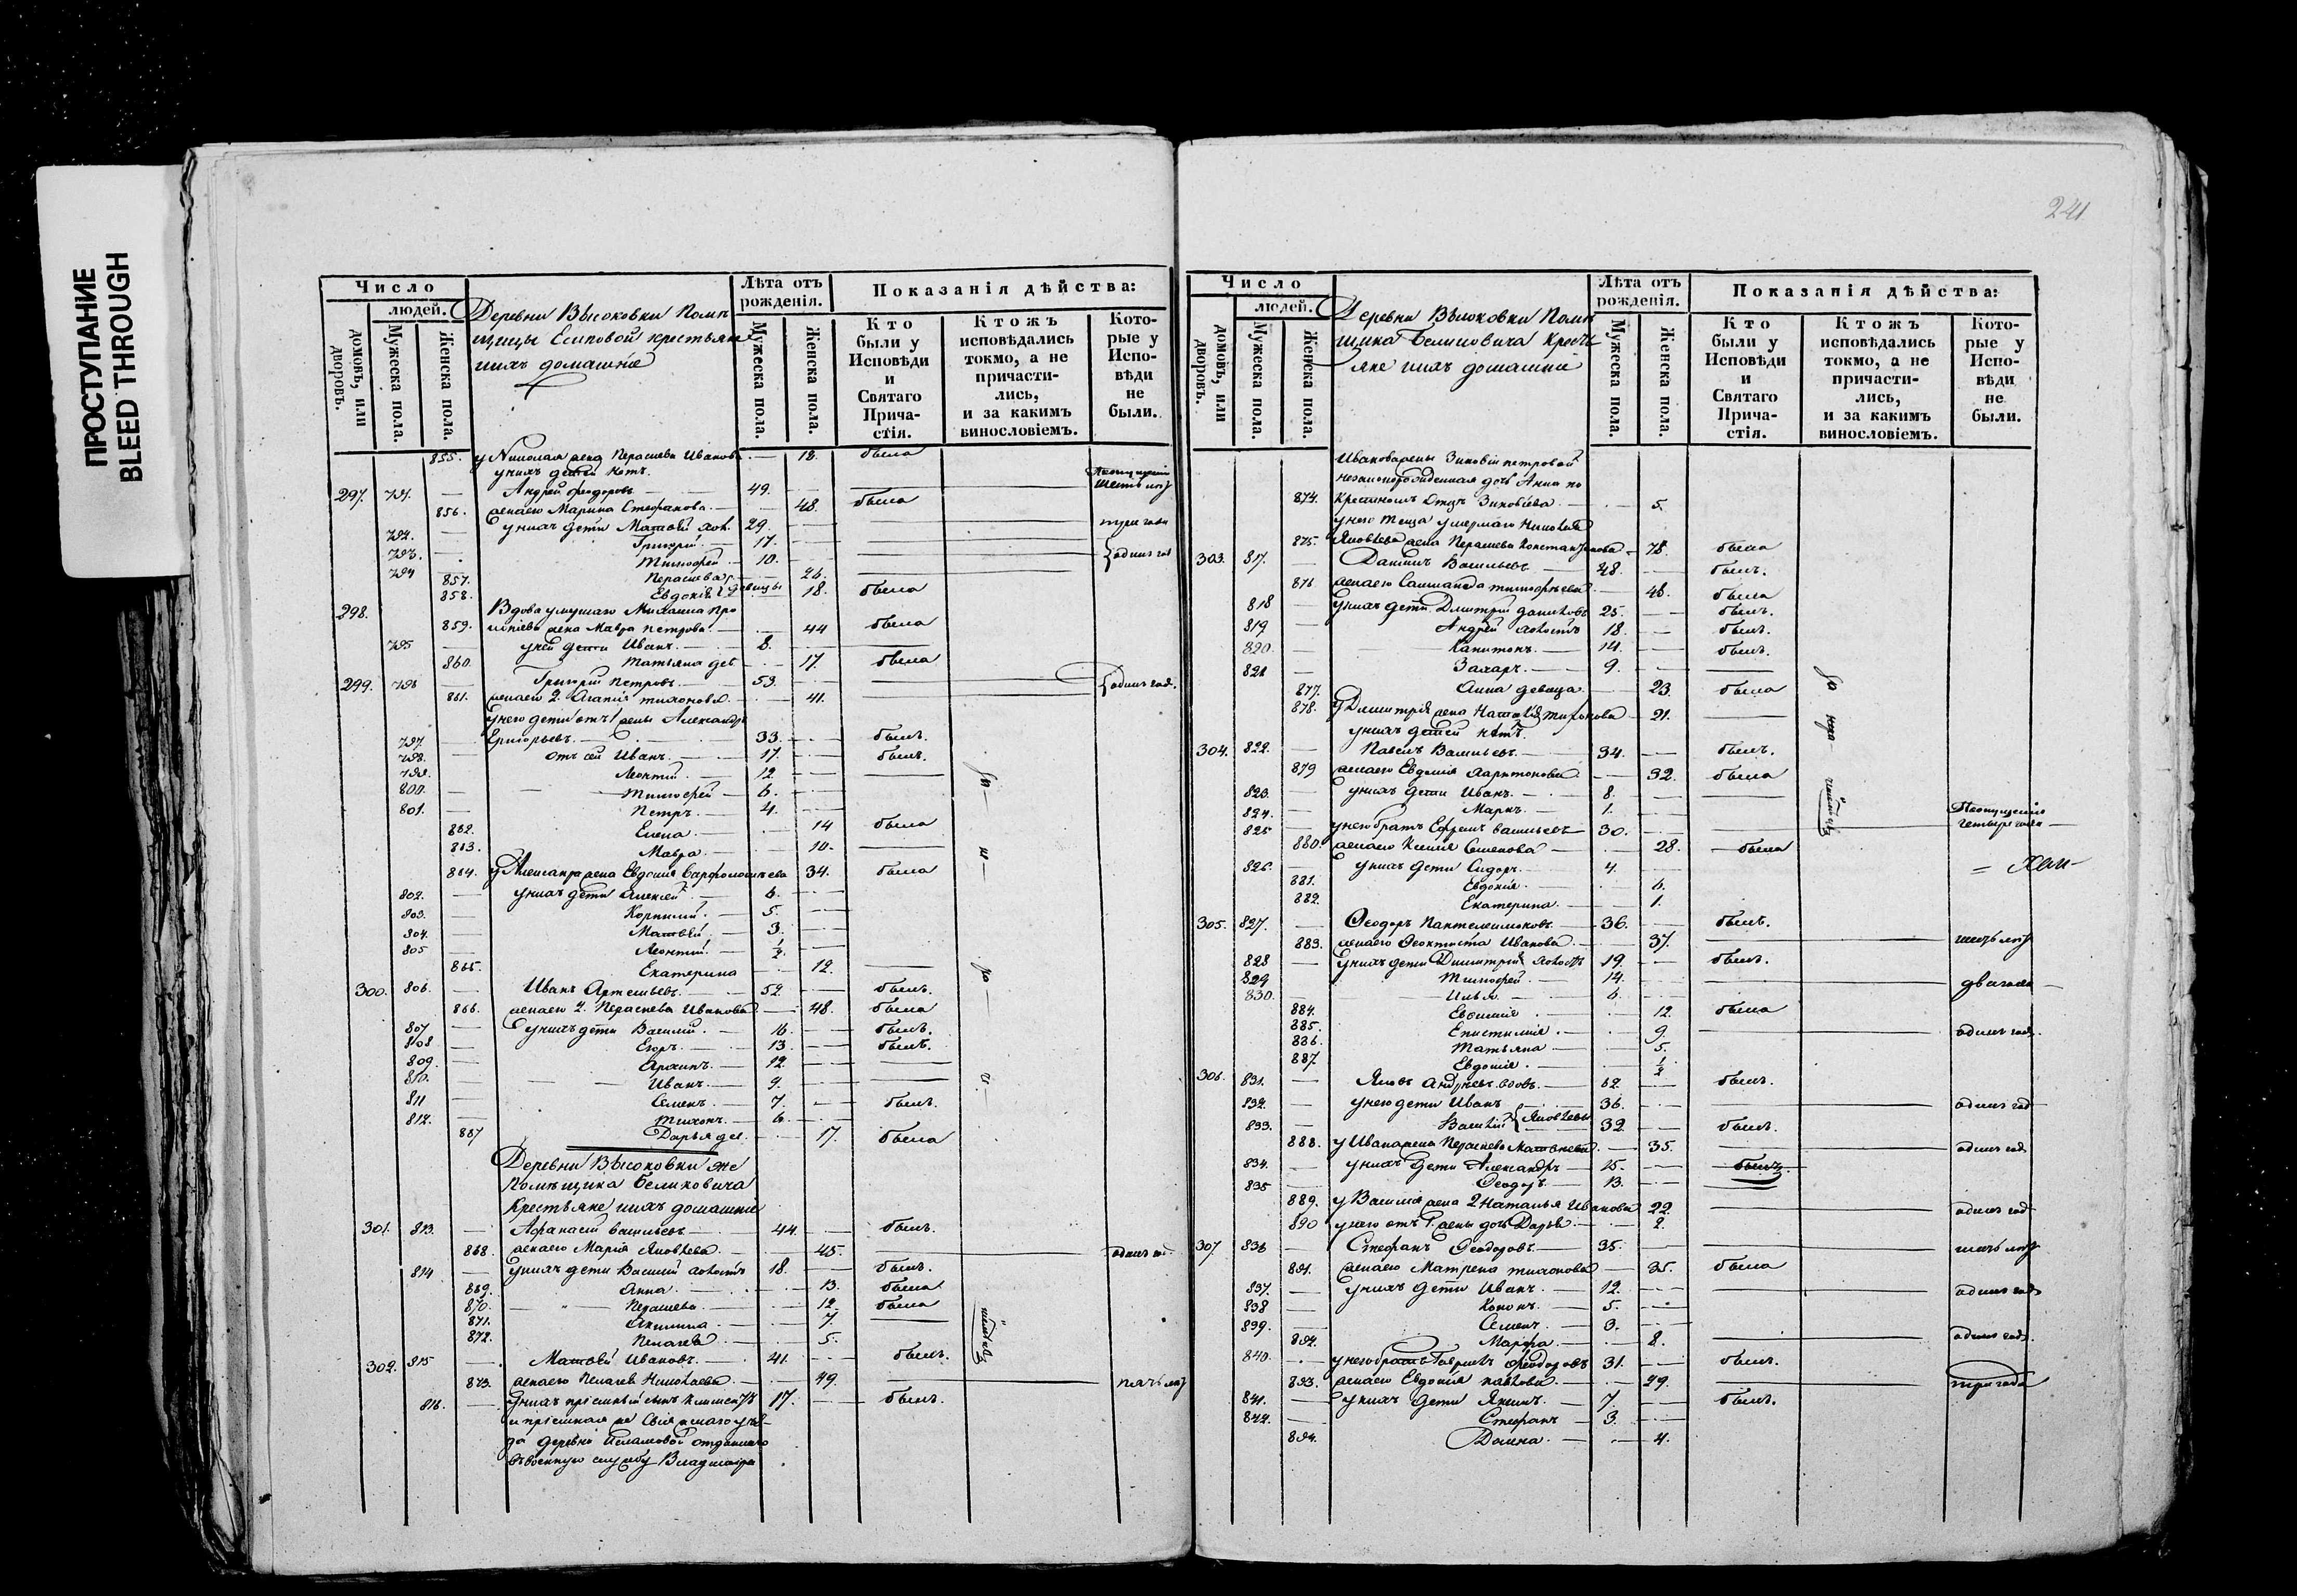 ПРОСТУПАНИЕ
BLEED THROUGH
Число
людей.
домовъ, или дворовъ.
Мужеска пола.
Женска пола.
Деревни Высоковки Помѣ
щицы Есиповой крестьяне
ихъ домашніе
Лѣта отъ рожденія.
Мужеска пола.
Женска пола.
Показанія дѣйства:
Кто были у Исповѣди и Святаго Прича- стія.
Ктожъ исповѣдались токмо, а не причасти- лись, и за какимъ винословіемъ.
Кото- рые у Испо- вѣди не были.
855. у Николая жена Параскева Иванова 18. была
у нихъ детей нетъ.
297. 791. Андрей Феодоровъ 49.
856. жена его Марина Стефанова 48. была
792. у нихъ дети Матвей 29. три года
793. Григорій 17.
794 Тимофей 10. одинъ год
857. Параскева 26.
858. Евдокія девицы 18. была
298. Вдова умершаго Михаила Про
859. жена Мавра Петрова 44 была
795 у ней дети Иванъ 8.
860. Татьяна дев 17. была
299. 796 Григорій Петровъ 53.
861. жена его 2. Агапія Тихонова 41. одинъ год.
у него дети отъ 1 жены Александръ
797. Григорьевъ 33. былъ.
798. отъ сей Иванъ 17. былъ.
799. Леонтій 12.
800. Тимофей 6.
801. Петръ 4.
862. Елена 14 была
863. Мавра 10.
864. у Александра жена Евдокія Варфоломеева 34. была
802. у нихъ дети Алексей 6.
803. Корнилій 5.
804. Матвей 3.
805 Леонтій ½
865. Екатерина 12.
300. 806. Иванъ Артемьевъ 52. былъ.
866. жена его 2. Параскева Иванова 48. была
807 у нихъ дети Василій 16. былъ.
808 Егоръ 13. былъ.
809. Архипъ 12.
810. Иванъ 9.
811 Семенъ 7. былъ.
812. Тихонъ 6.
867 Дарья дев. 17. была
Деревни Высоковки же
Помѣщика Беликовича
крестьяне ихъ домашніе
301. 813. Афанасій Васильевъ 44. былъ.
868. жена его Марія Яковлева 45. одинъ год.
814 у нихъ дети Василій холостъ 18. былъ.
869. Анна 13. была
870. Параскева 12. была
871. Акилина 7.
872. Пелагея 5.
302. 815 Матвей Ивановъ 41. былъ.
873. жена его Пелагея Николаева 49. пять лѣтъ
816. у нихъ пріемный сынъ 17. былъ.
да деревни отданнаго
въ военную службу Владимира
241
Число
людей.
домовъ, или дворовъ.
Мужеска пола.
Женска пола.
Деревни Высоковки Помѣ
щика Беликовича Кресть
яне ихъ домашніе
Лѣта отъ рожденія.
Мужеска пола.
Женска пола.
Показанія дѣйства:
Кто были у Исповѣди и Святаго Прича- стія.
Ктожъ исповѣдались токмо, а не причасти- лись, и за какимъ винословіемъ.
Кото- рые у Испо- вѣди не были.
Иванова жены Зиновіи Петровой
незаконнорожденная дочь Анна по
874. крестномъ отцѣ Зиновьева 5.
у него теща умершаго Николая
875. Яковлева жена Параскева Константинова 78. была
303. 817. Даніилъ Васильевъ 48. была.
876 жена его Тимофеева 46. была
818 у нихъ дети Димитрій 25. былъ.
819 Андрей холостъ 18. былъ.
820. Капитонъ 14. былъ.
821 Захаръ 9.
877. Анна девица 23. была
878. у Димитрія жена Наталія 21.
у нихъ детей нетъ.
304. 822. Павелъ Васильевъ 34. былъ.
879 жена его Евдокія Харитонова 32. была
823. у нихъ дети Иванъ 8.
824. Маркъ 1.
825 у него братъ Ефремъ Васильевъ 30. четыре года
880. жена его Ксенія Семенова 28. была
826. у нихъ дети Сидоръ 4.
881. Евдокія 6.
882. Екатерина 1.
305. 827. Феодоръ Пантелеимоновъ 36. былъ.
883. жена его Феоктиста Иванова 37.
828 у нихъ дети Димитрій холостъ 19. былъ.
829 Тимофей 14. два года
830. Илья 6.
884. Евфимія 12 была
885. Епистимія 9. одинъ год.
886. Татьяна 5.
887. Евдокія ½
306. 831. Яковъ Андреевъ вдовъ 62. былъ.
832. у него дети Иванъ 36. одинъ год
833. Василій Яковлевы 32. былъ.
888. у Ивана жена Параскева Матвеева 35. одинъ год
834. у нихъ дети Александръ 15. былъ
835 Феодоръ 13.
889. у Василія жена 2 Наталья Иванова 22. одинъ год
890 у него отъ 1. жены дочь Дарья 2.
307. 836 Стефанъ Феодоровъ 35.
891. жена его Матрена Тихонова 35. была
837. у нихъ дети Иванъ 12. одинъ год
838 Кононъ 5.
839. Семенъ 3.
892. Марфа 8. одинъ год.
840. у него братъ Гавріилъ Феодоровъ 31. былъ.
893. жена его Евдокія Павлова 29. три года
841. у нихъ дети Якимъ 7. былъ.
842. Стефанъ 3.
894. Домна 4.